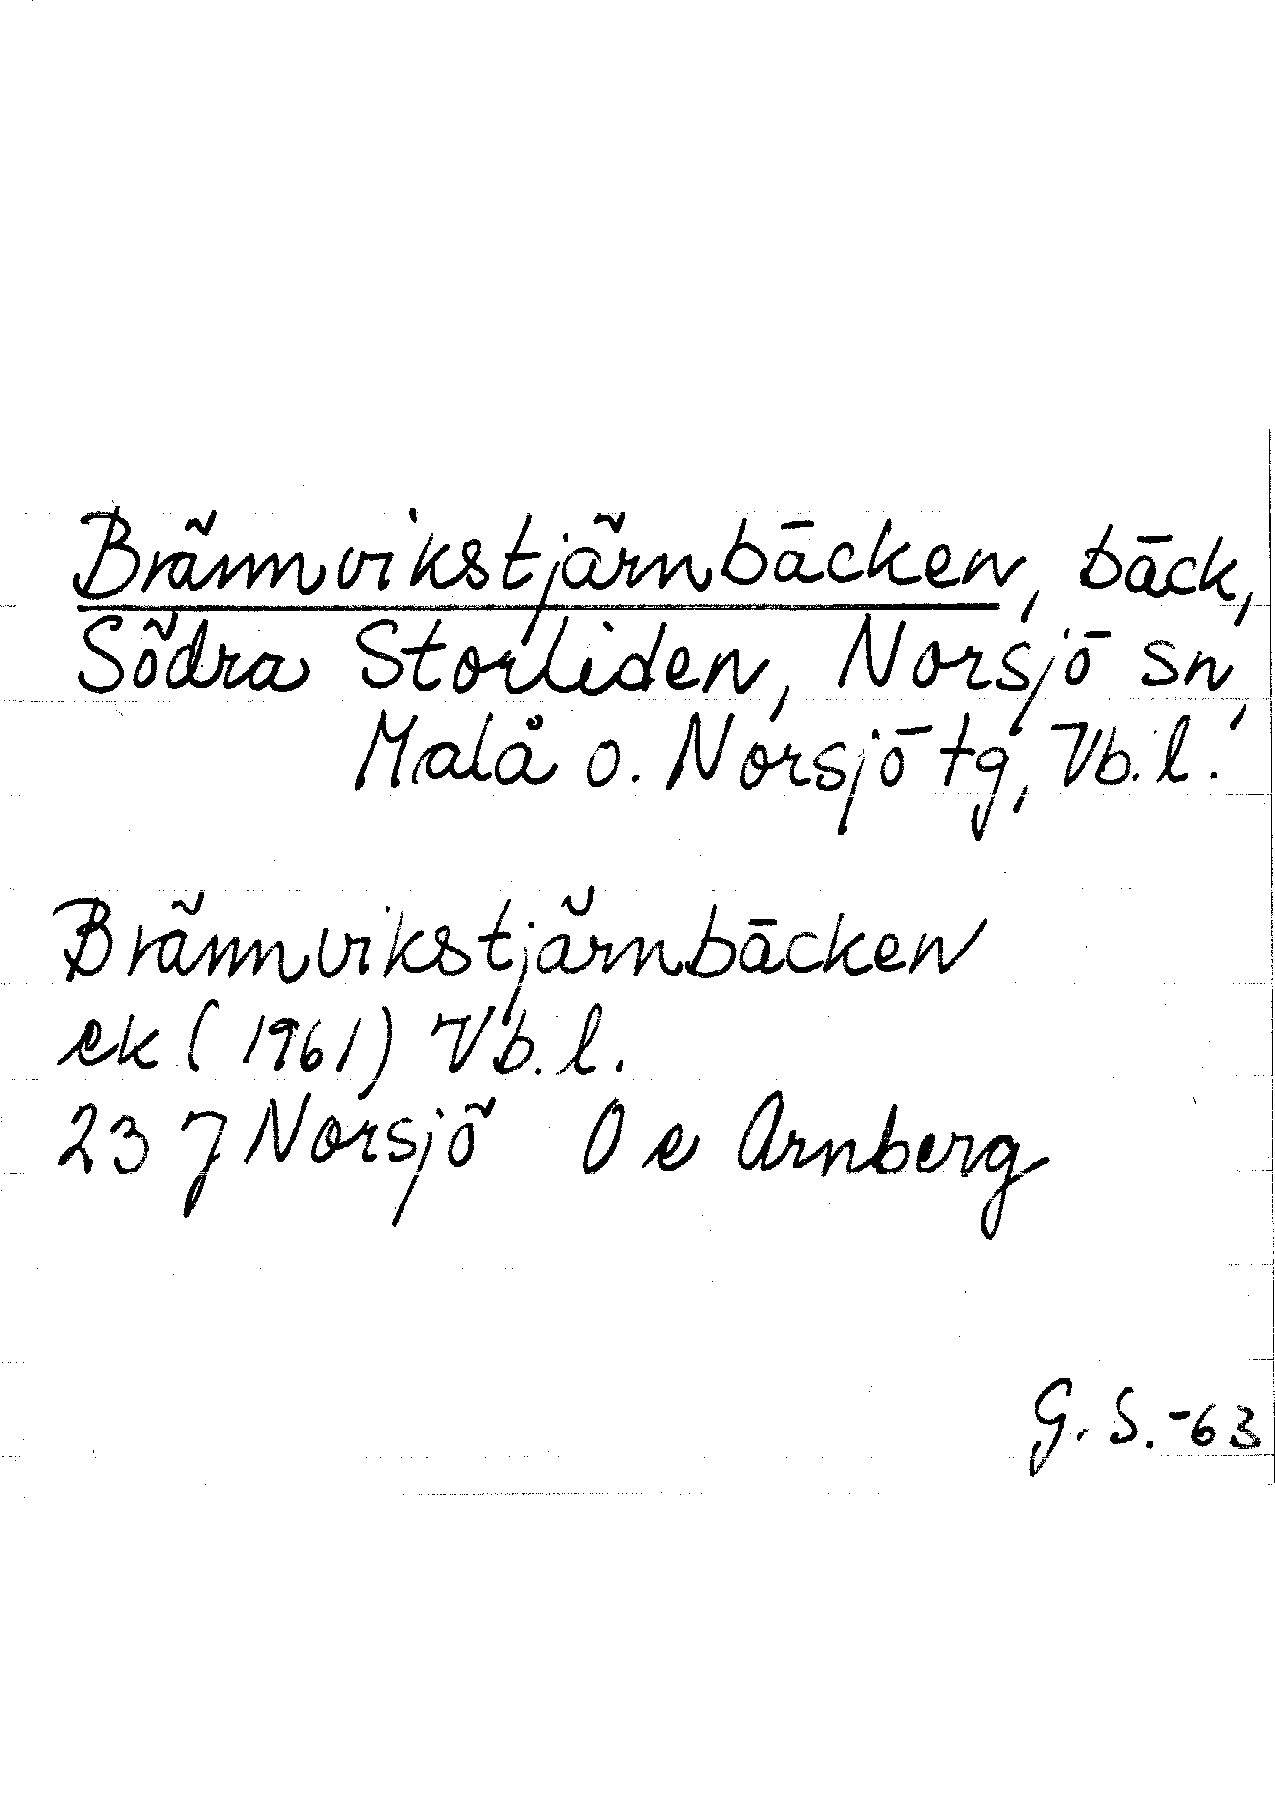 Brännvikstjärnbäcken, bäck,
Södra Storliden, Norsjö sn,
Malå o. Norsjö tg, Vb.l.
Brännvikstjärnbäcken
ek (1961) Vb.l.
23 J Norsjö O e Arnberg
G. S.-63